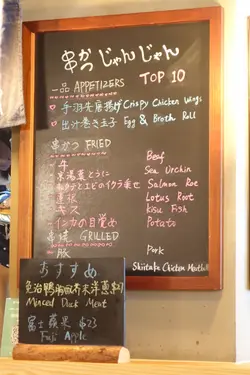 串かつ じゃんじゃん
TOP 10
一品 APPETIZERS
手羽先唐揚げ Crispy Chicken Wings
出汁巻き玉子 Egg & Broth Roll
串かつ FRIED
牛 Beef
京湯葉とうに Sea Urchin
ホタテとエビのイクラ乗せ Salmon Roe
蓮根 Lotus Root
キス Kisu Fish
インカの目覚め Potato
串焼 GRILLED
豚 Pork
Shiitake Chicken Meatball
おすすめ
免治鴨
Minced Duck Meat
富士蘋果 $23
Fuji Apple